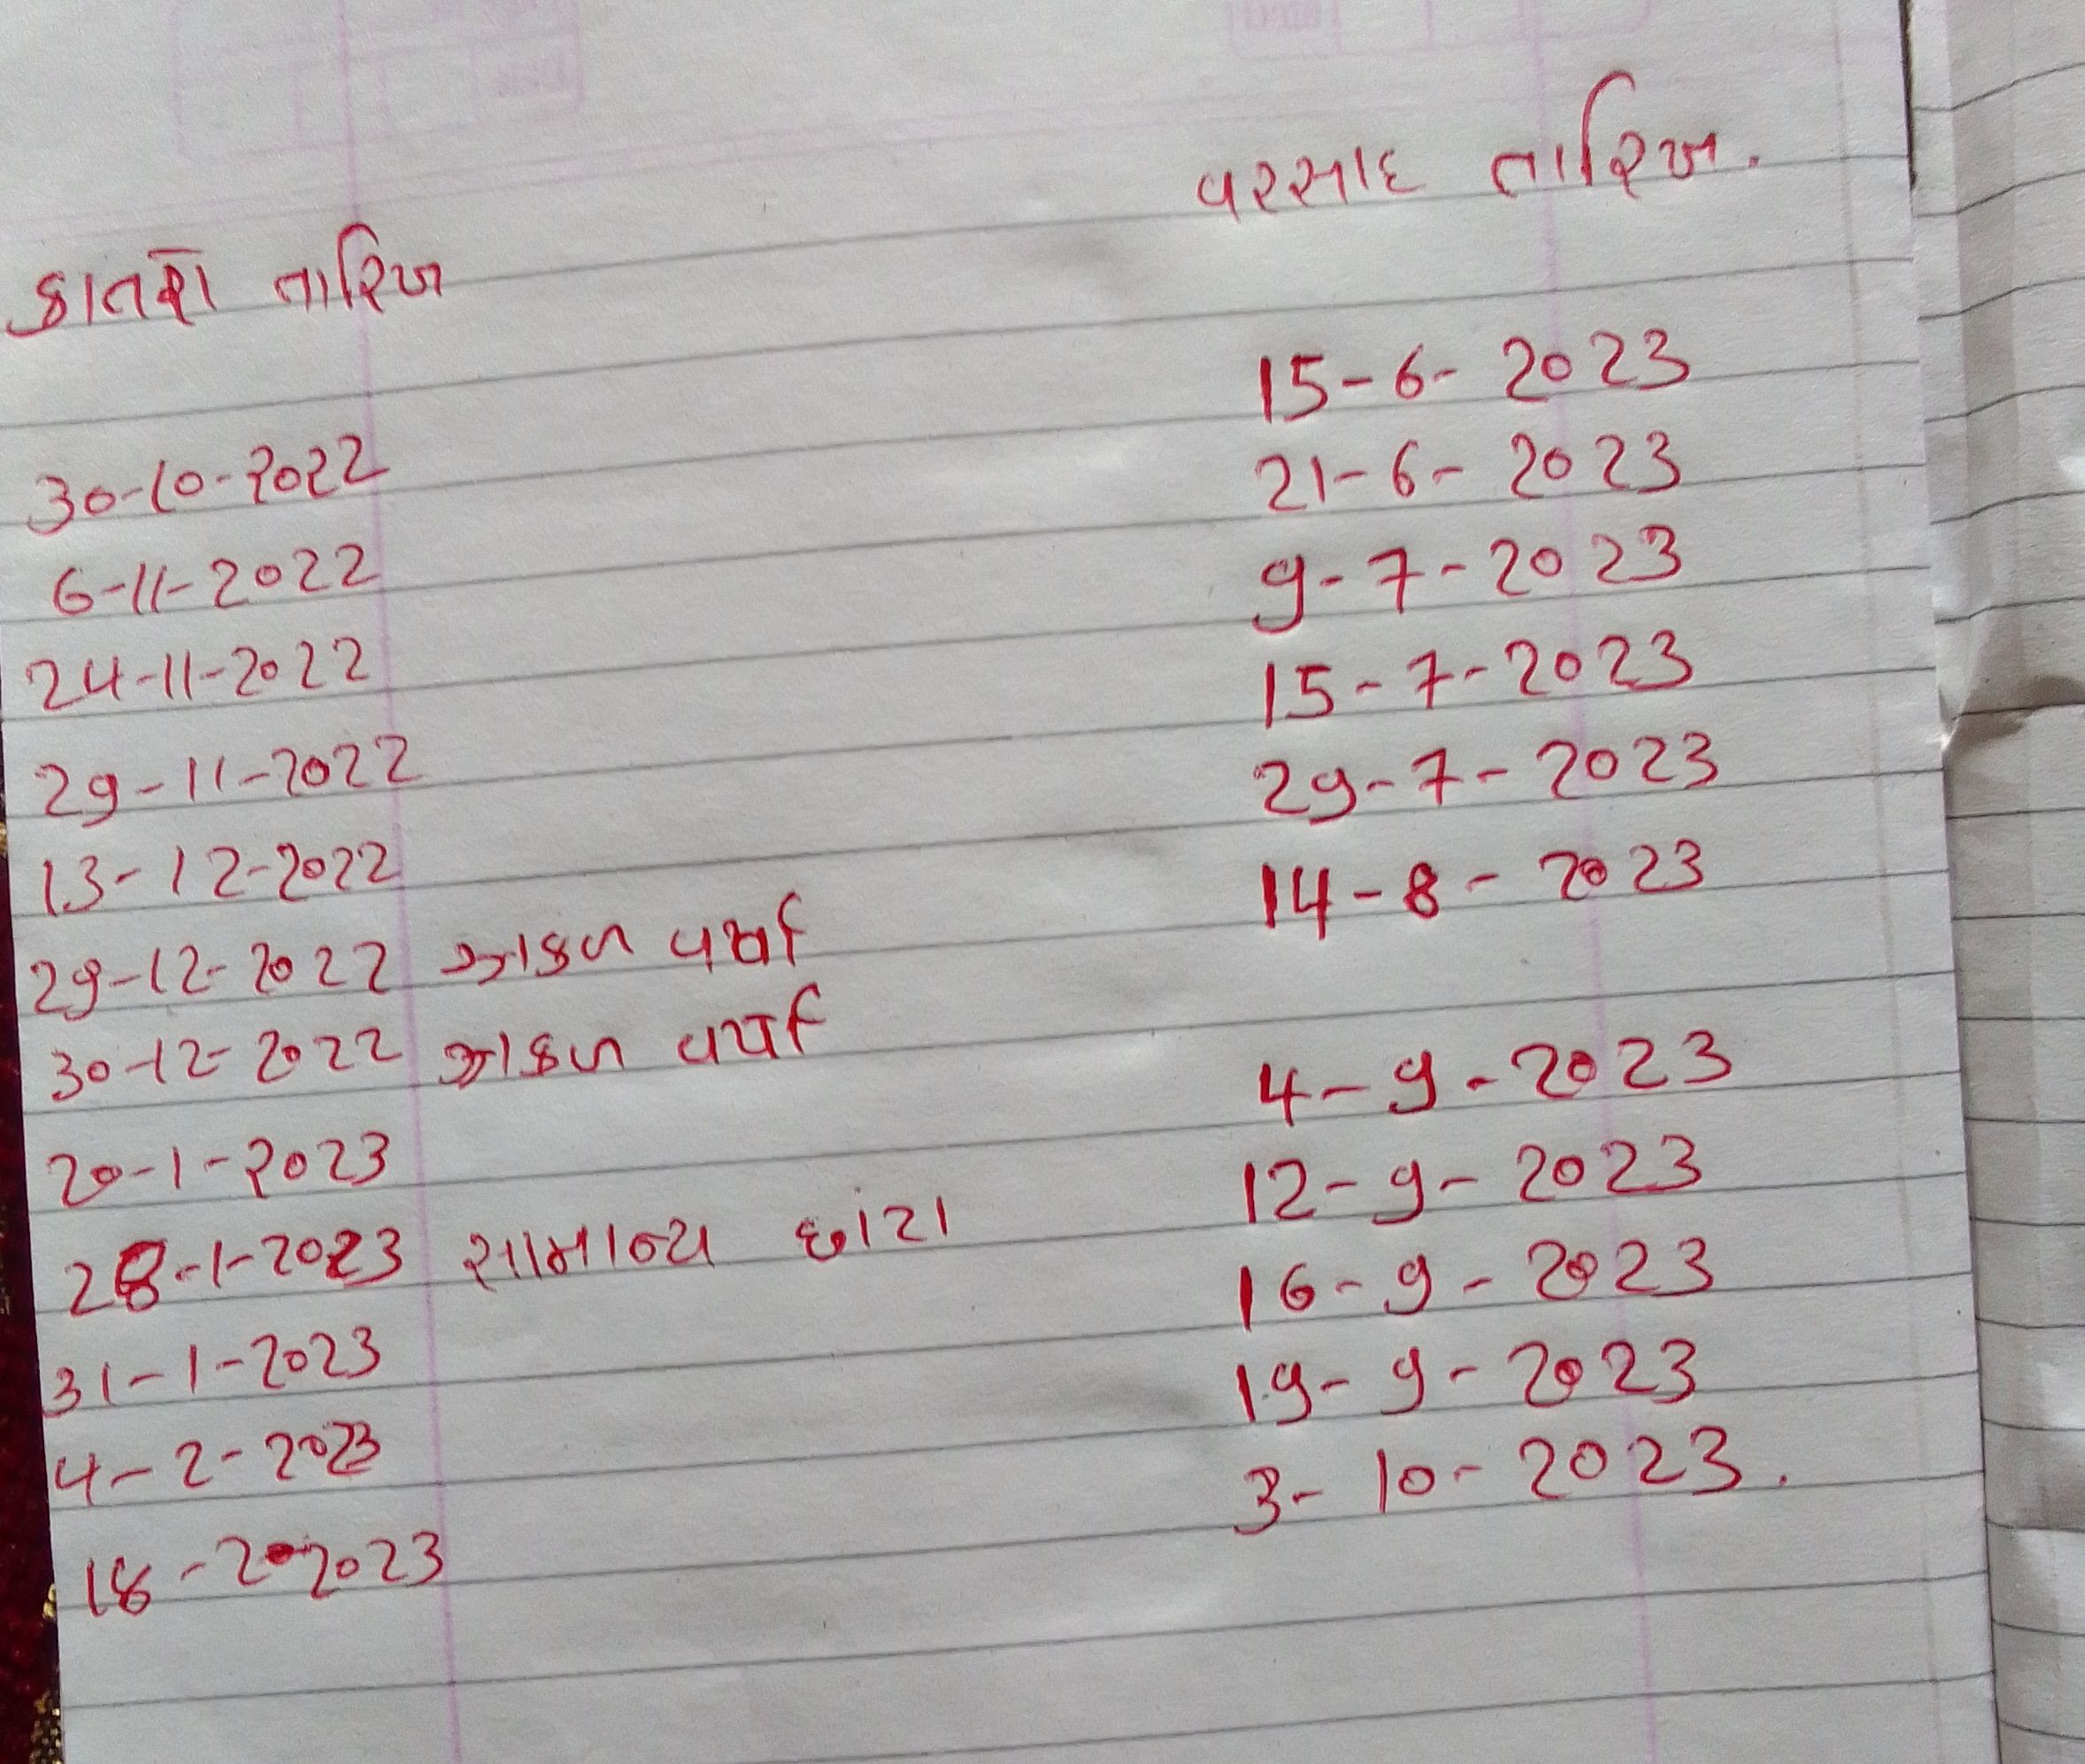 કાતરા તારિખ
30-10-2022
6-11-2022
24-11-2022
29-11-2022
13-12-2022
29-12-2022 ઝાકળ વર્ષા
30-12-2022 ઝાકળ વર્ષા
20-1-2023
28-1-2023 સામાન્ય છાંટા
31-1-2023
4-2-2023
18-2-2023
વરસાદ તારિખ.
15-6-2023
21-6-2023
9-7-2023
15-7-2023
29-7-2023
14-8-2023
4-9-2023
12-9-2023
16-9-2023
19-9-2023
3-10-2023.